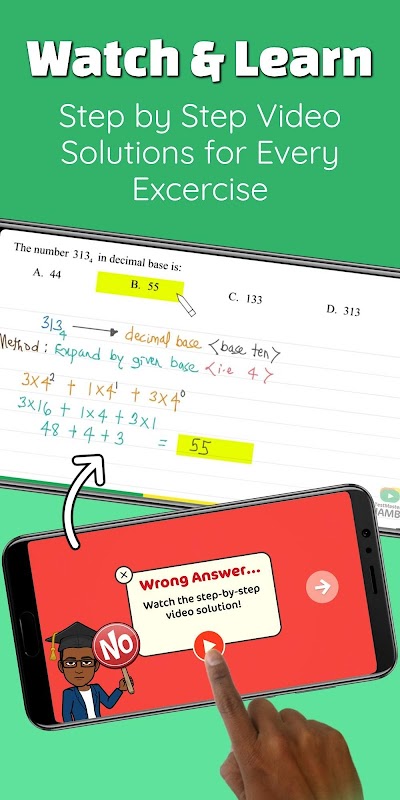 Watch & Learn
Step by Step Video
Solutions for Every
Excercise
The number 313₄ in decimal base is:
A. 44
B. 55
C. 133
D. 313
313₄ → decimal base <base ten>
Method: Expand by given base <i.e 4>
3×4² + 1×4¹ + 3×4⁰
3×16 + 1×4 + 3×1
48 + 4 + 3 = 55
Wrong Answer...
Watch the step-by-step
video solution!
NO